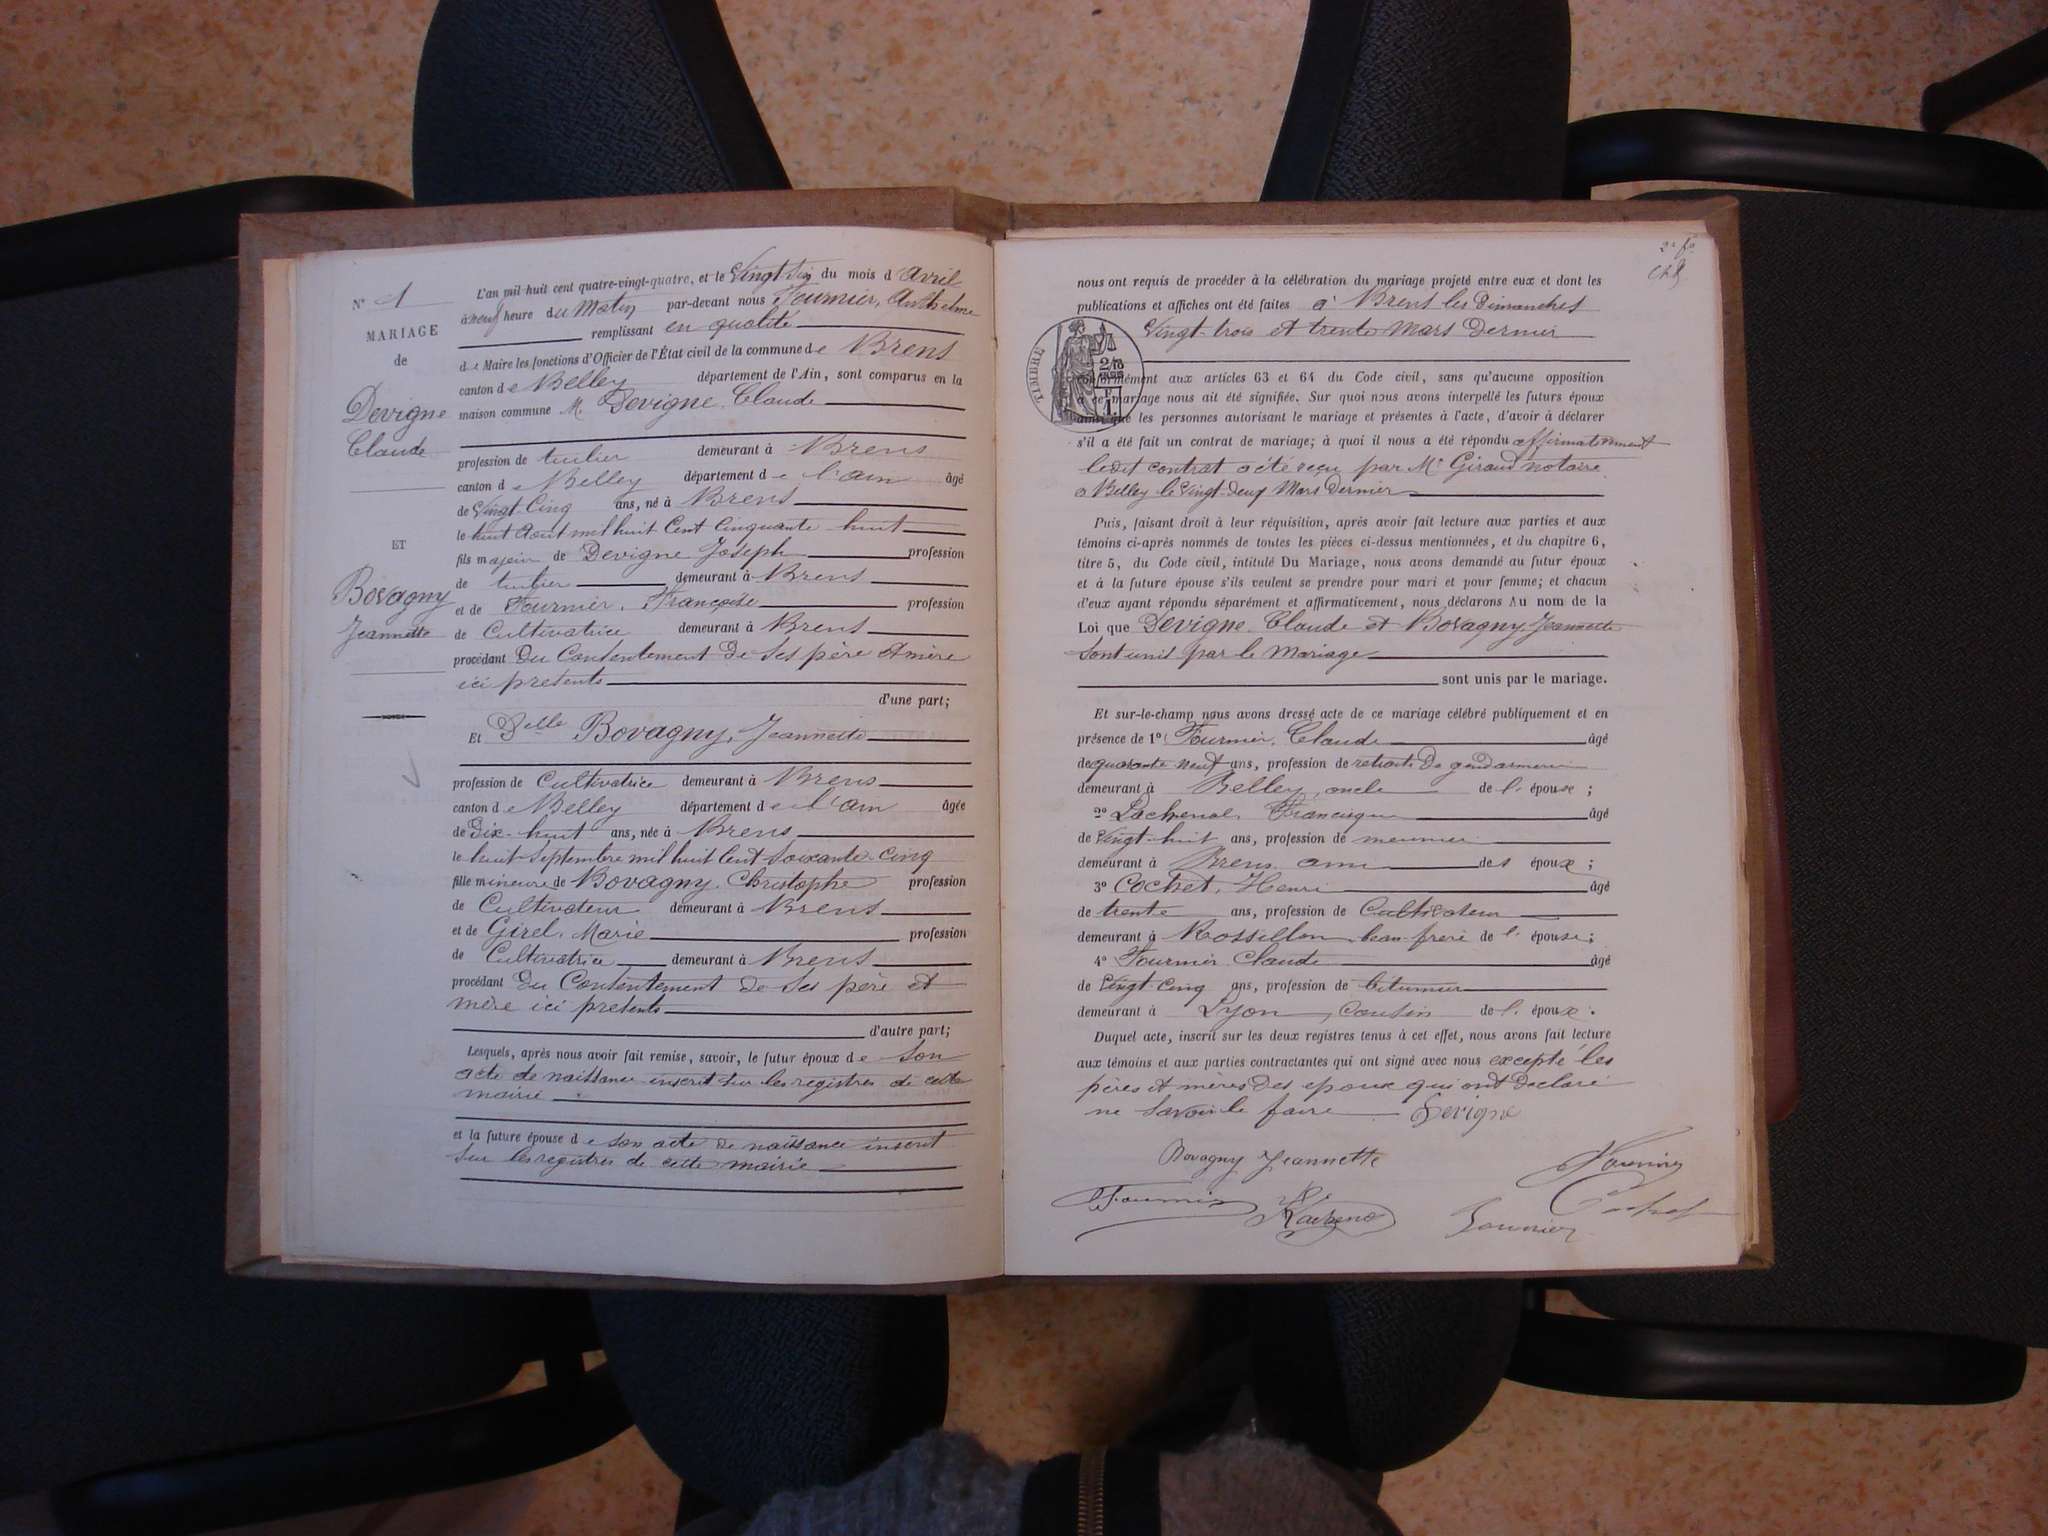 N° 1
MARIAGE
de
Devigne
Claude
ET
Bovagny
Jeannette
L'an mil huit cent quatre-vingt-quatre, et le Vingt Six du mois d'Avril
à neuf heure du Matin par-devant nous Fournier, Anthelme
remplissant en qualité
de Maire les fonctions d'Officier de l'État civil de la commune de Brens
canton de Belley département de l'Ain, sont comparus en la
maison commune M. Devigne, Claude
profession de tuilier demeurant à Brens
canton de Belley département de l'ain âgé
de Vingt-Cinq ans, né à Brens
le huit Août mil huit Cent Cinquante huit
fils majeur de Devigne Joseph profession
de tuilier demeurant à Brens
et de Fournier, Françoise profession
de Cultivatrice demeurant à Brens
procédant Du Consentement De Ses père et mère
ici présents
d'une part;
Et Delle Bovagny, Jeannette
profession de Cultivatrice demeurant à Brens
canton de Belley département de l'ain âgée
de Dix-huit ans, née à Brens
le huit Septembre mil huit Cent Soixante-Cinq
fille mineure de Bovagny, Christophe profession
de Cultivateur demeurant à Brens
et de Girel, Marie profession
de Cultivatrice demeurant à Brens
procédant Du Consentement de Ses père et
mère ici présents
d'autre part;
Lesquels, après nous avoir fait remise, savoir, le futur époux de Son
acte de naissance inscrit Sur les registres de cette
mairie
et la future épouse de Son acte de naissance inscrit
Sur les registres de cette mairie
2e fo
nous ont requis de procéder à la célébration du mariage projeté entre eux et dont les
publications et affiches ont été faites à Brens les Dimanches
Vingt-trois et trente Mars Dernier
TIMBRE
conformément aux articles 63 et 64 du Code civil, sans qu'aucune opposition
à ce mariage nous ait été signifiée. Sur quoi nous avons interpellé les futurs époux
ainsi que les personnes autorisant le mariage et présentes à l'acte, d'avoir à déclarer
s'il a été fait un contrat de mariage; à quoi il nous a été répondu affirmativement
ledit contrat a été reçu par Me Giraud notaire
à Belley le Vingt-Deux Mars Dernier
Puis, faisant droit à leur réquisition, après avoir fait lecture aux parties et aux
témoins ci-après nommés de toutes les pièces ci-dessus mentionnées, et du chapitre 6,
titre 5, du Code civil, intitulé Du Mariage, nous avons demandé au futur époux
et à la future épouse s'ils veulent se prendre pour mari et pour femme; et chacun
d'eux ayant répondu séparément et affirmativement, nous déclarons Au nom de la
Loi que Devigne, Claude et Bovagny, Jeannette
Sont unis par le Mariage
sont unis par le mariage.
Et sur-le-champ nous avons dressé acte de ce mariage célébré publiquement et en
présence de 1° Fournier, Claude âgé
de quarante neuf ans, profession de retraité De gendarmerie
demeurant à Belley, oncle de l'épouse;
2° Lachenal, Francisque âgé
de Vingt-huit ans, profession de meunier
demeurant à Brens ami des époux;
3° Cochet, Henri âgé
de trente ans, profession de Cultivateur
demeurant à Rossillon, beau-frère de l'épouse;
4° Fournier Claude âgé
de Vingt-Cinq ans, profession de bitumier
demeurant à Lyon, Cousin de l'époux.
Duquel acte, inscrit sur les deux registres tenus à cet effet, nous avons fait lecture
aux témoins et aux parties contractantes qui ont signé avec nous excepté les
pères et mères Des époux qui ont Déclaré
ne Savoir le faire Devigne
Bovagny Jeannette Fournier
Fournier Lachenal Cochet
Fournier